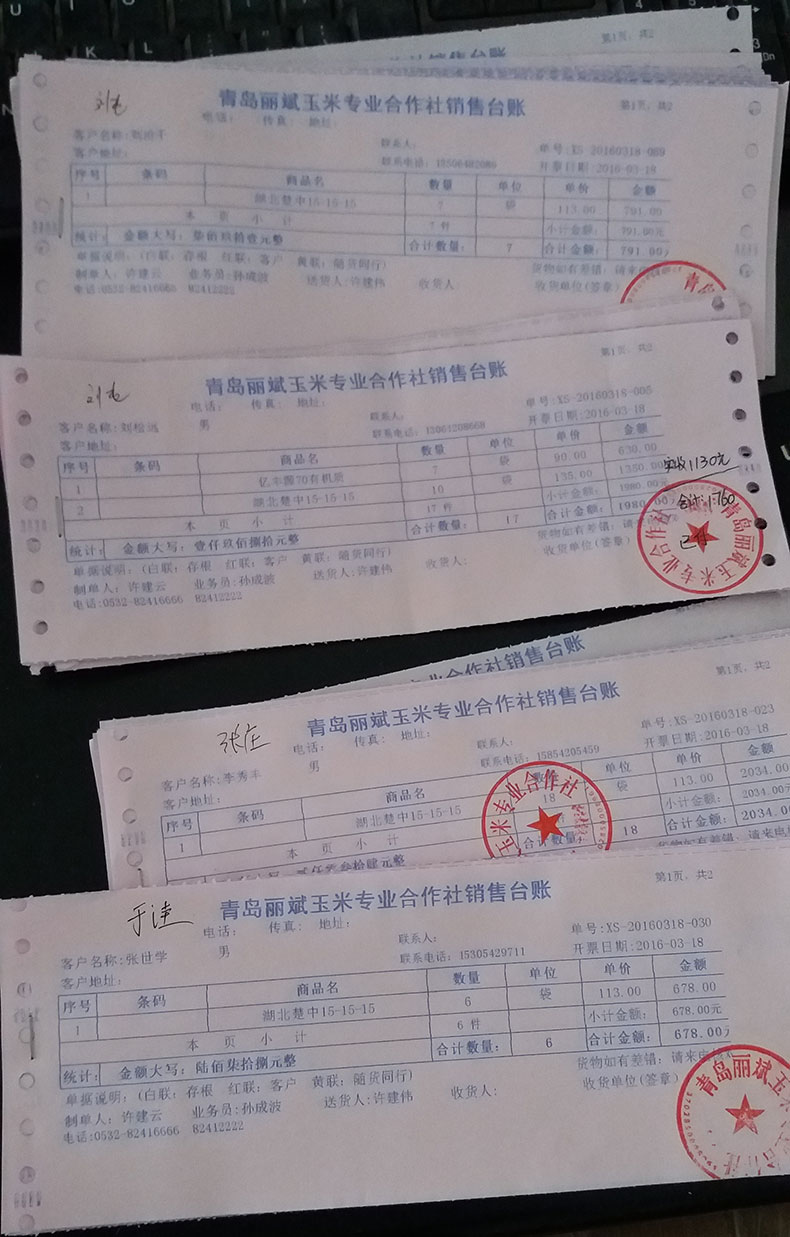 第1页，共2
销售台账
青岛丽斌玉米专业合作社销售台账
第1页，共2
电话： 传真： 地址：
客户名称：
联系人：
单号：XS-20160318-089
客户地址：
联系电话：15506482086
开票日期：2016-03-18
序号 条码 商品名 数量 单位 单价 金额
1 湖北楚中15-15-15 7 袋 113.00 791.00
本 页 小 计 7 件 小计金额： 791.00元
统计： 金额大写：柒佰玖拾壹元整 合计数量： 7 合计金额： 791.00元
单据说明：(白联：存根 红联：客户 黄联：随货同行) 货物如有差错，请来
制单人：许建云 业务员：孙成波 送货人：许建伟 收货人： 收货单位(签章)
电话：0532-82416666 82412222
青
青岛丽斌玉米专业合作社销售台账
第1页，共2
电话： 传真： 地址：
客户名称：刘松远 男
联系人：
单号：XS-20160318-005
客户地址：
联系电话：13061208668
开票日期：2016-03-18
序号 条码 商品名 数量 单位 单价 金额
1 亿丰源70有机质 7 袋 90.00 630.00
2 湖北楚中15-15-15 10 袋 135.00 1350.00
本 页 小 计 17 件 小计金额： 1980.00元
统计： 金额大写：壹仟玖佰捌拾元整 合计数量： 17 合计金额： 1980
实收1130元
合计：1760
单据说明：(白联：存根 红联：客户 黄联：随货同行) 货物如有差错，请
制单人：许建云 业务员：孙成波 送货人：许建伟 收货人： 收货单位(签章)
电话：0532-82416666 82412222
青岛丽斌 专业合作社
玉米专业合作社销售台账
青岛丽斌玉米专业合作社销售台账
第1页，共2
张庄
电话： 传真： 地址：
客户名称：李秀丰 男
联系人：
单号：XS-20160318-023
客户地址：
联系电话：15854205459
开票日期：2016-03-18
序号 条码 商品名 数量 单位 单价 金额
1 湖北楚中15-15-15 18 袋 113.00 2034.00
本 页 小 计 小计金额： 2034.00元
合计数量： 18 合计金额： 2034.00
货物如有差错，请来电
玉米专业合作社
青岛丽斌玉米专业合作社销售台账
第1页，共2
于洼
电话： 传真： 地址：
客户名称：张世学 男
联系人：
单号：XS-20160318-030
客户地址：
联系电话：15305429711
开票日期：2016-03-18
序号 条码 商品名 数量 单位 单价 金额
1 湖北楚中15-15-15 6 袋 113.00 678.00
本 页 小 计 6 件 小计金额： 678.00元
统计： 金额大写：陆佰柒拾捌元整 合计数量： 6 合计金额： 678.00元
单据说明：(白联：存根 红联：客户 黄联：随货同行) 货物如有差错，请来电
制单人：许建云 业务员：孙成波 送货人：许建伟 收货人： 收货单位(签章)
电话：0532-82416666 82412222
青岛丽斌玉 合作社